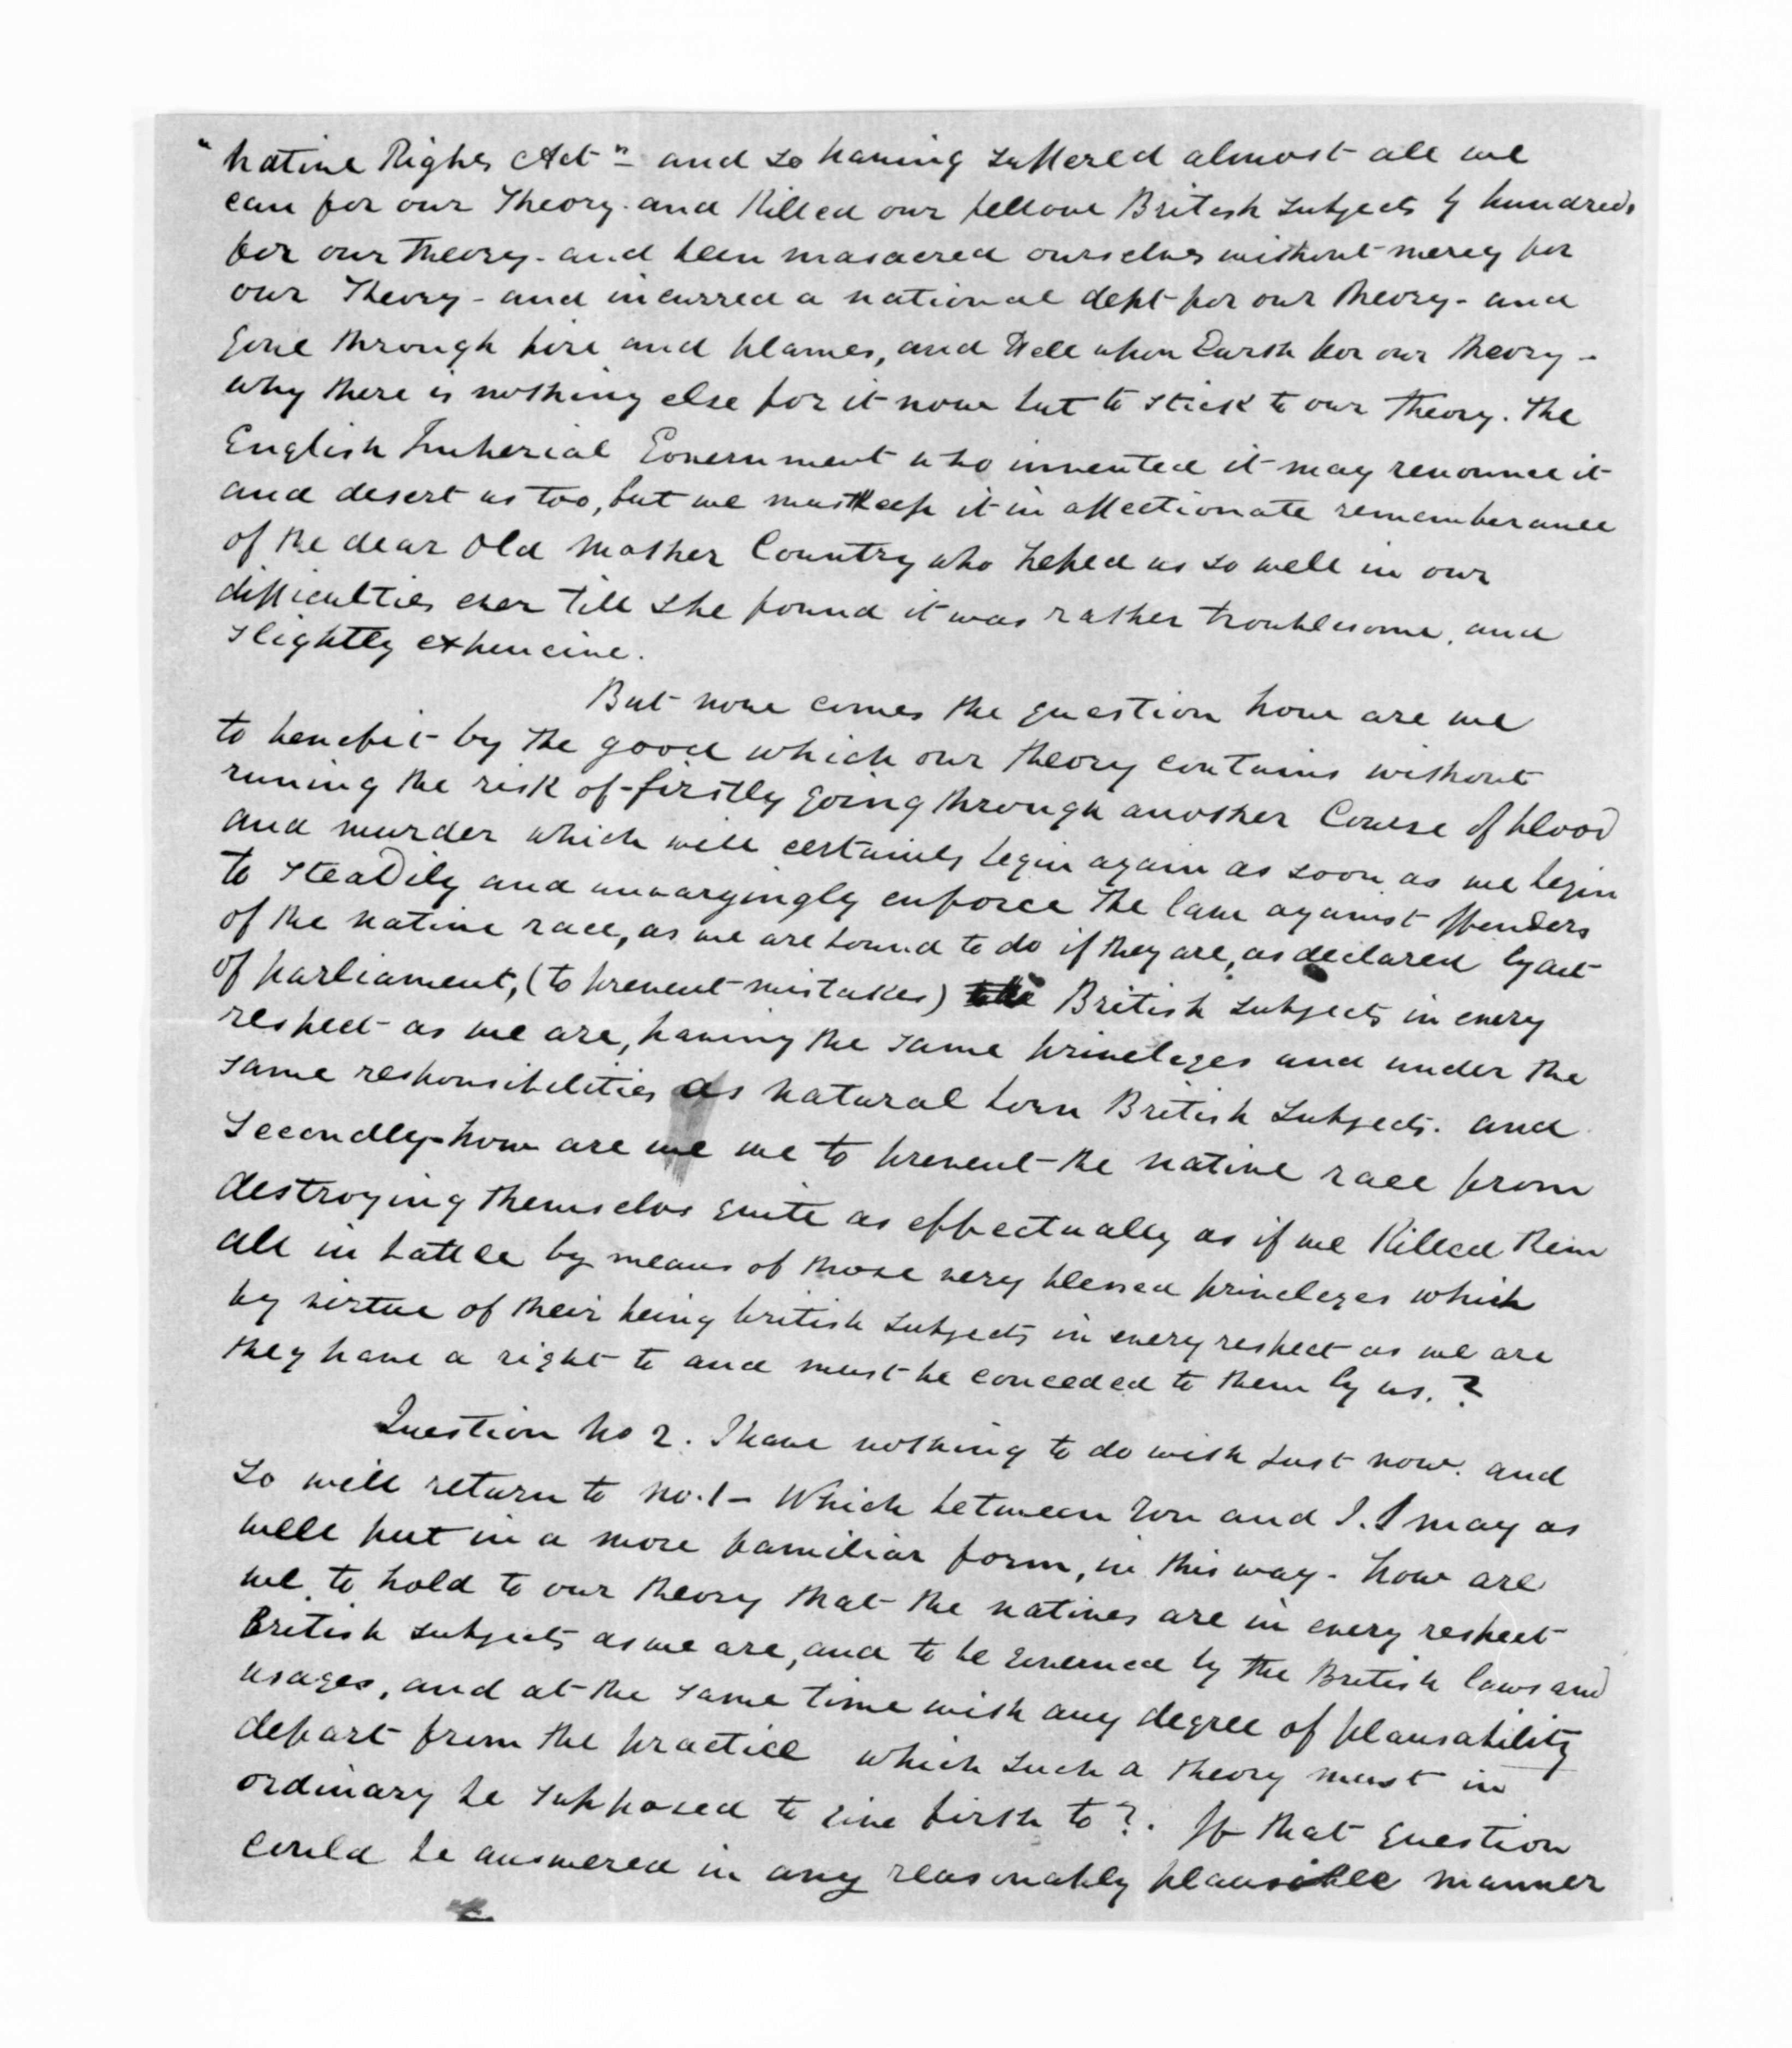 "Native Rights Act" - and so having suffered almost all we
can for our Theory. and Killed our fellow British Subjects by hundreds
for our theory - and been masacred ourselves without mercy for
our Theory - and incurred a national dept for our theory - and
gone through fire and flames, and Hell upon Earth for our theory -
why there is nothing else for it now but to stick to our theory. The
English Imperial Government who invented it may renounce it
and desert us too, but we must keep it in affectionate rememberance
of the dear Old Mother Country who heped us so well in our
difficulties ever till she found it was rather troublesome, and
slightly expencive.
But now comes the question how are we
to benefit by the good which our theory contains without
runing the risk of - firstly going through another Course of blood
and murder which will certainly begin again as soon as we begin
to steadily and unvaryingly enforce the law against offenders
of the native race, as we are bound to do if they are, as declared by act
of parliament, (to prevent mistakes) British Subjects in every
respect as we are, having the same priveleges and under the
same responsibilities as natural born British Subjects. and
Secondly - how are we we to prevent the native race from
destroying themselvs quite as effectually as if we Killed them
all in battle by means of those very blessed priveleges which
by virtue of their being british subjects in every respect as we are
they have a right to and must be conceded to them by us.?
Question No 2. I have nothing to do with just now. and
so will return to No. 1 - Which between You and I. I may as
well put in a more familiar form, in this way - how are
we to hold to our theory that the natives are in every respect
British subjects as we are, and to be governed by the British laws and
usages, and at the same time with any degree of plausability
depart from the practice which such a theory must in
ordinary be supposed to give birth to?. If that question
could be answered in any reasonably plausible manner